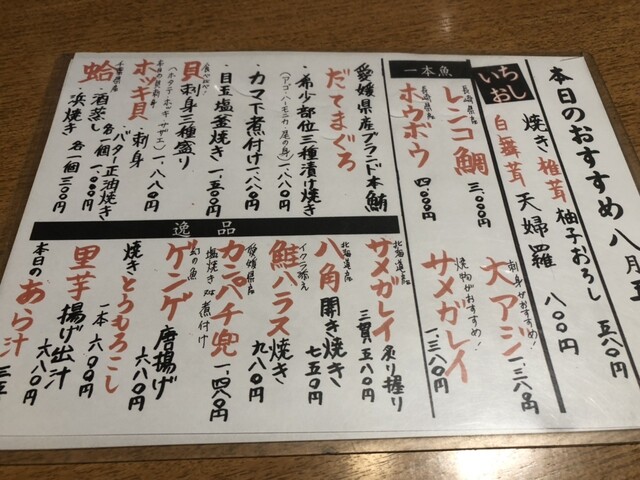 本日のおすすめ 八月五
いちおし
焼き椎茸 柚子おろし 五八〇円
白舞茸 天婦羅 八〇〇円
一本魚
長崎県産
レンコ鯛 三、〇〇〇円
長崎県産
ホウボウ 四、〇〇〇円
刺身がおすすめ!
大アジ 一、三八〇円
焼物がおすすめ!
サメガレイ 一、三八〇円
愛媛県産ブランド本鮪
だてまぐろ
・希少部位三種漬け焼き
(アゴ・ハーモニカ・尾の身) 一、八八〇円
・カマ下煮付け 一、八八〇円
・目玉塩釜焼き 一、五〇〇円
食べ比べ!
貝 刺身三種盛り
(ホタテ・ホッキ・サザエ)
本日の貝刺身
ホッキ貝 ・刺身 一、八八〇円
・バター正油焼き
千葉県産
蛤 ・酒蒸し 各一個 一、〇〇〇円
・浜焼き 各一個 三〇〇円
逸品
北海道産
サメガレイ 炙り握り
三貫 五八〇円
北海道産
八角 開き焼き 七五〇円
イクラ添え
鮭ハラス焼き 九八〇円
愛媛県産
カンパチ兜 一、四八〇円
塩焼き or 煮付け
幻の魚
ゲンゲ 唐揚げ 六八〇円
焼きとうもろこし
一本 六〇〇円
里芋 揚げ出汁 六八〇円
本日の あら汁 三五